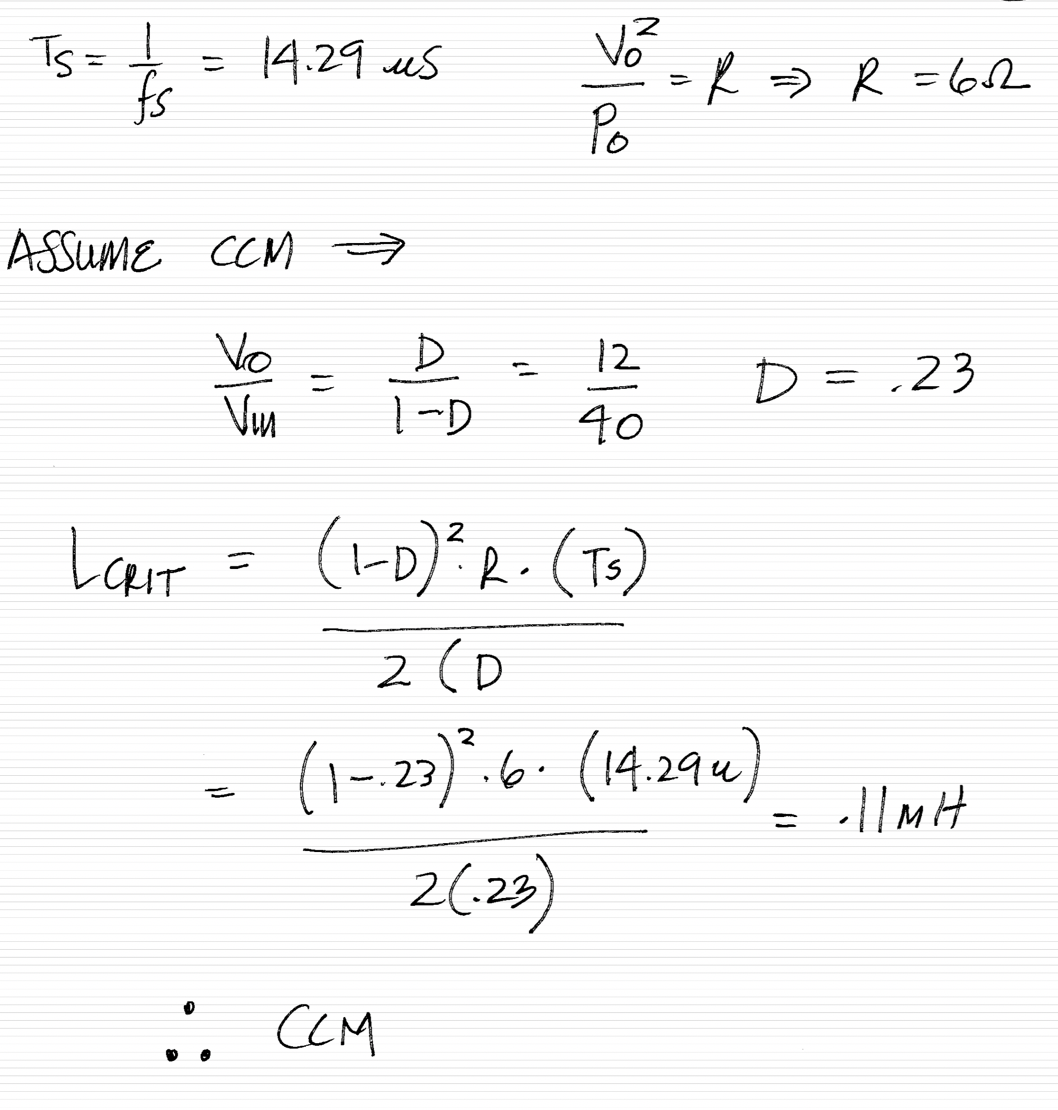 Ts = 1/fs = 14.29 us   Vo²/Po = R ⇒ R = 6Ω
ASSUME CCM ⇒
Vo/Vin = D/(1-D) = 12/40   D = .23
LCRIT = (1-D)²·R·(Ts) / 2(D
= (1-.23)²·6·(14.29u) / 2(.23) = .11mH
∴ CCM